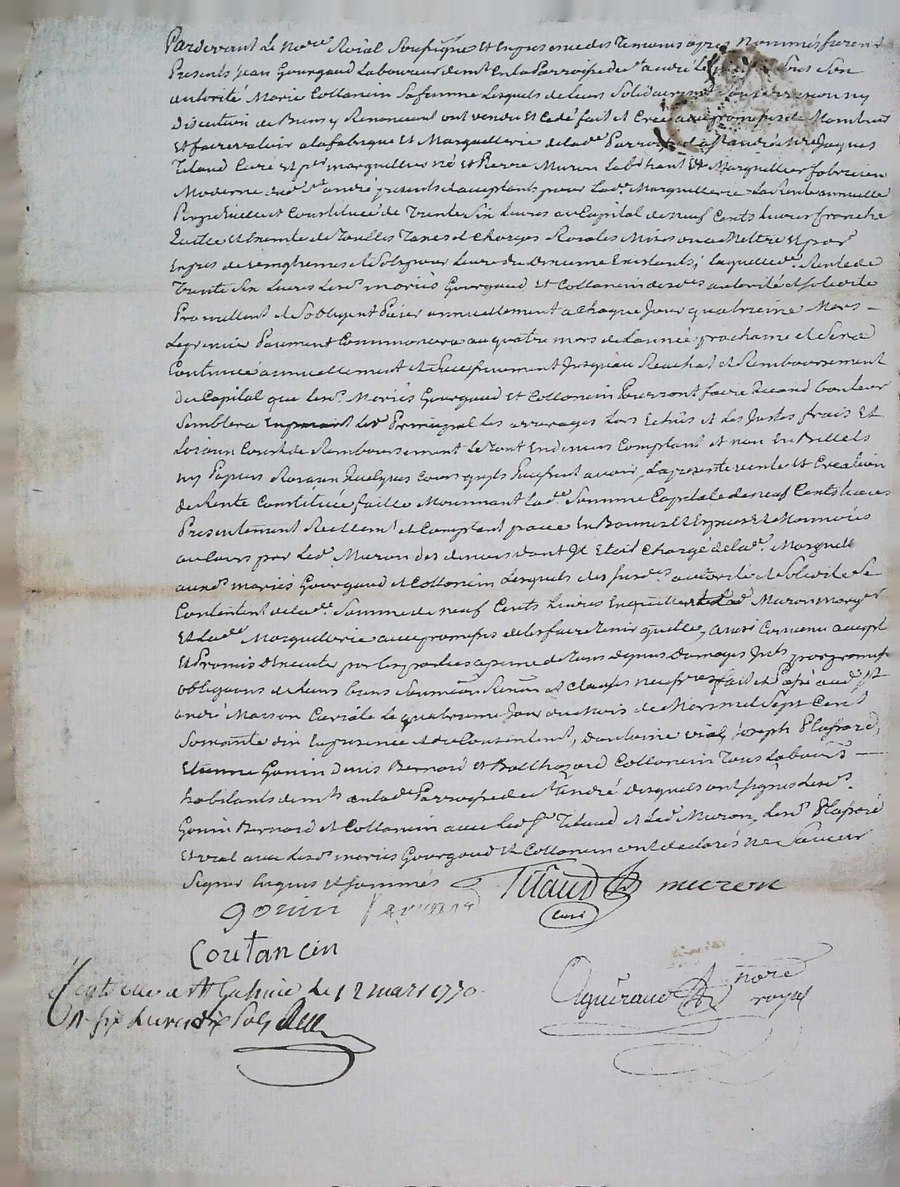 Pardevant Le nore Roial Soussigne Et En presence des Temoins apres Nommés furent
Presents Jean Gourgaud Laboureur demt En La Parroisse de st andré Sous Son
autorité Marie Collonin Sa femme Lesquels de leurs Solidairement Sans division ny
Discution de Biens y Renoncent ont vendu Et Cedé fait et Créé avec promesse de
Et faire valoir a la fabrique Et Marguillerie de lade Parroisse de st andré Jacques
Titaud Curé Et per marguillier né et Pierre Muron Labt habt Et Marguillier fabricien
Moderne dud. st andré presents Et acceptants pour Lade Marguillerie La Rente annuelle
Perpetuelle et Constituée de Trente Six Livres au Capital de neuf Cents Livres franche
quitte et Exemte de Toutes Taxes et Charges Royales Mises ou a Mettre Et par
Expres de vingtiemes et Sols pour Livre du Dixieme Existants; laquelle de Rente de
Trente Six Livres Lesd. mariés Gourgaud Et Collonin autorité et solidité
Promettent et S'obligent Paier annuellement a Chaque Jour quatrieme Mars
Le premier Paiement Commencera au quatre mars de L'année prochaine et Sera
Continué annuellement et Successivement Jusqu'au Rachat et Remboursement
du Capital que Lesd. Mariés Gourgaud et Collonin Pourront faire quand bon leur
Semblera En paiant led. Principal les arrerages Lors Echus et Les Justes frais Et
Loyaux Couts de Remboursement Le Tout En deniers Comptant et non En Billets
ny Papiers Roiaux quelques Cours qu'ils Puissent avoir, La presente vente et Creation
de Rente Constituée faitte Moiennant lade Somme Capitale de neuf Cents Livres
Presentement Reellement et Comptant paiée En Bonnes Et Especes Et Monnoies
au Cours par Led. Muron des deniers dont Il Etait Chargé de lade Marguillie
auxd. mariés Gourgaud et Collonin Lesquels autorité et Solidité Se
Contentent de lade Somme de neuf Cents Livres En quittent Led. Muron marger
Et lade Marguillerie avec promesse de les faire Tenir quitte, ainsi Convenu accepté
Et Promis Executer par les parties a peine de Tous depens Domages Ints par promesse
obligations de leurs biens Soumissions Renons et Clauses necessres fait et Passé aud. st
andré Maison Curiale Le quatrieme Jour du Mois de Mars mil Sept Cent
Soixante dix En presence et du Consentemt, d'antoine vial, Joseph Plassard,
Etienne Gonin denis Bernard et Balthazard Collonin Tous Labours
habitants demts en lade Parroisse de st andré desquels ont Signés Lesd.
Gonin Bernard et Collonin avec Led. Sr Titaud et Led. Muron, Lesd. Plassard
Et vial avec Lesd. mariés Gourgaud et Collonin ont declarés ne Savoir
Signer Enquis et Sommés Titaud Curé muron
gonin Bernard
Coutancin
le 12 mars 1770
Six Livres dix Sols
Aguiraud nore royal